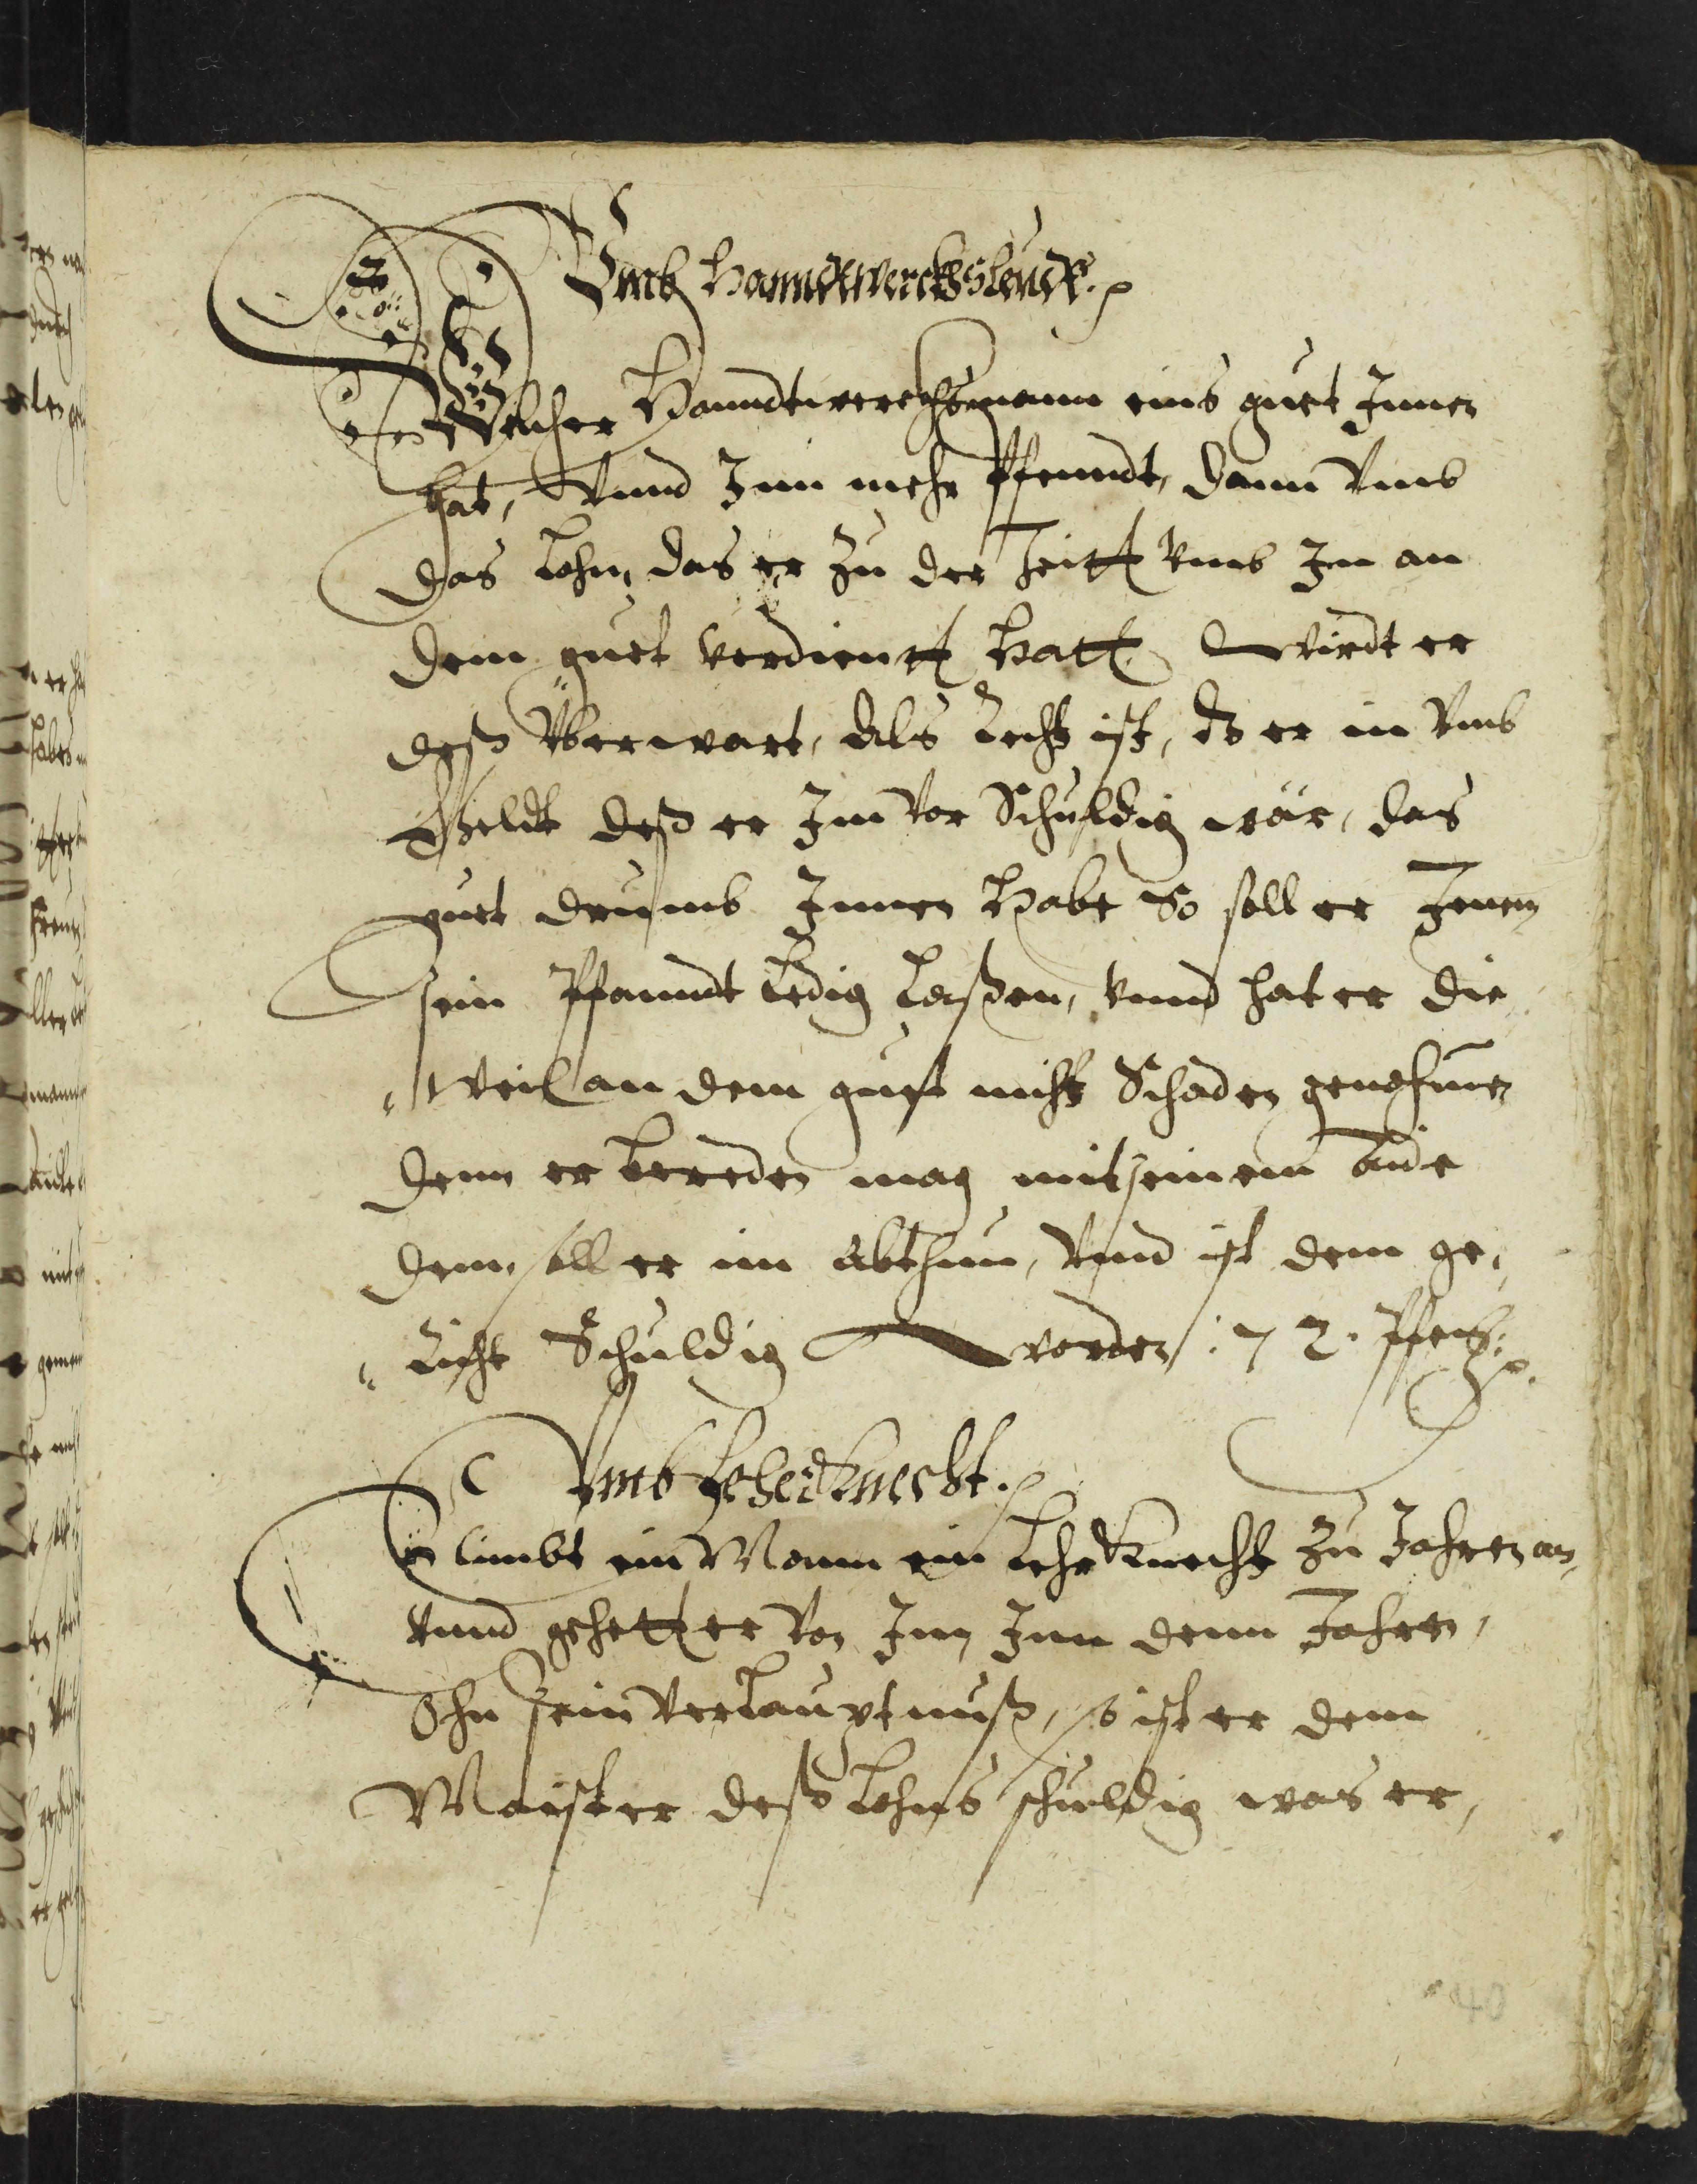 Vmb Hanndtwerckhsleudt.
Welcher Hanndtwerchsmann eins guet Innen
hat, Vnnd Im mehr Pfenndt, dann Vmb
das Lohn, das er zu der Zeitt Vmb In an
dem guet verdientt hatt, Wirdt er
deß Vberwart, Als Recht ist, do er in Vmb
Geldt deß er Im Vor Schuldig wär, das
guet drumb Innen habe So soll er Jenem
sein Pfanndt Ledig Laßen, Vnnd hat er die
weil an dem guet nicht Schaden genohmen
denn er bereden mag mit seinem Aide
denn soll er im Abthun, Vnd ist dem ge-
richt Schuldig worden .72. Pfen:
Vmb Lehrknecht.
Nimbt ein Mann ein Lehrknecht zu Jahren an,
Vnnd gehett er Von Im, Inn denn Jahren,
Ohn sein Verlauptnuß, so ist er dem
Maister deß Lohns schuldig was er,
40